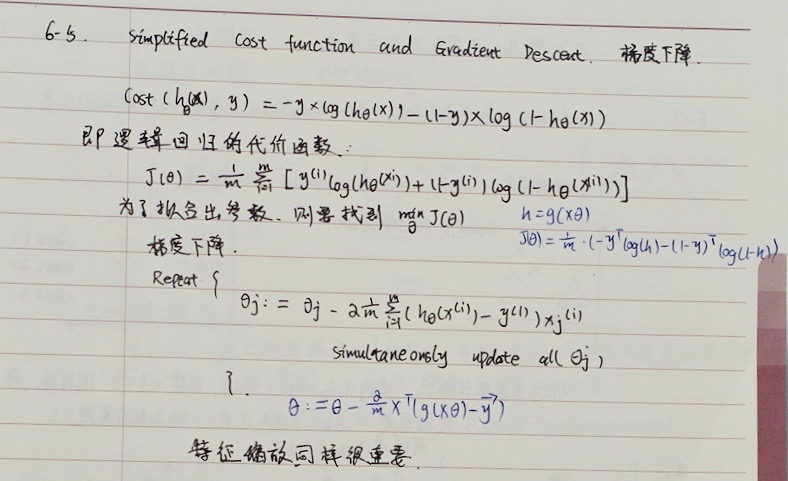 6-5. Simplified Cost function and Gradient Descent. 梯度下降.
Cost(hθ(x), y) = -y × log(hθ(x)) - (1-y) × log(1-hθ(x))
即逻辑回归的代价函数:
J(θ) = 1/m Σ_{i=1}^{m} [y^(i) log(hθ(x^i)) + (1-y^(i)) log(1-hθ(x^(i)))]
为了拟合出参数. 则要找到 min_θ J(θ) h=g(xθ)
梯度下降. J(θ) = 1/m · (-y^T log(h) - (1-y)^T log(1-h))
Repeat {
θj := θj - α 1/m Σ_{i=1}^{m} (hθ(x^(i)) - y^(i)) xj^(i)
simultaneously update all θj)
}.
θ := θ - α/m X^T (g(Xθ) - y⃗)
特征缩放同样很重要.